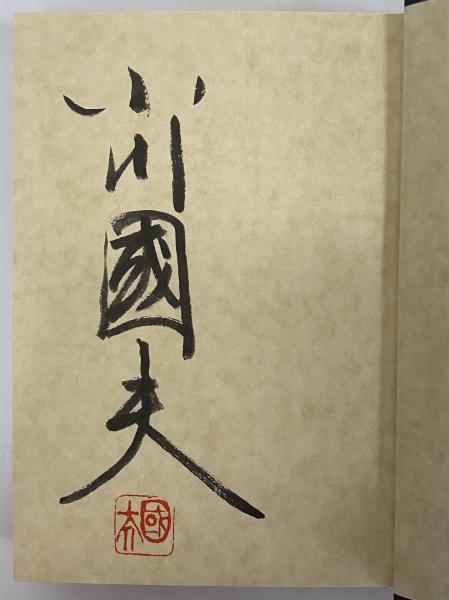 小川國夫
國夫